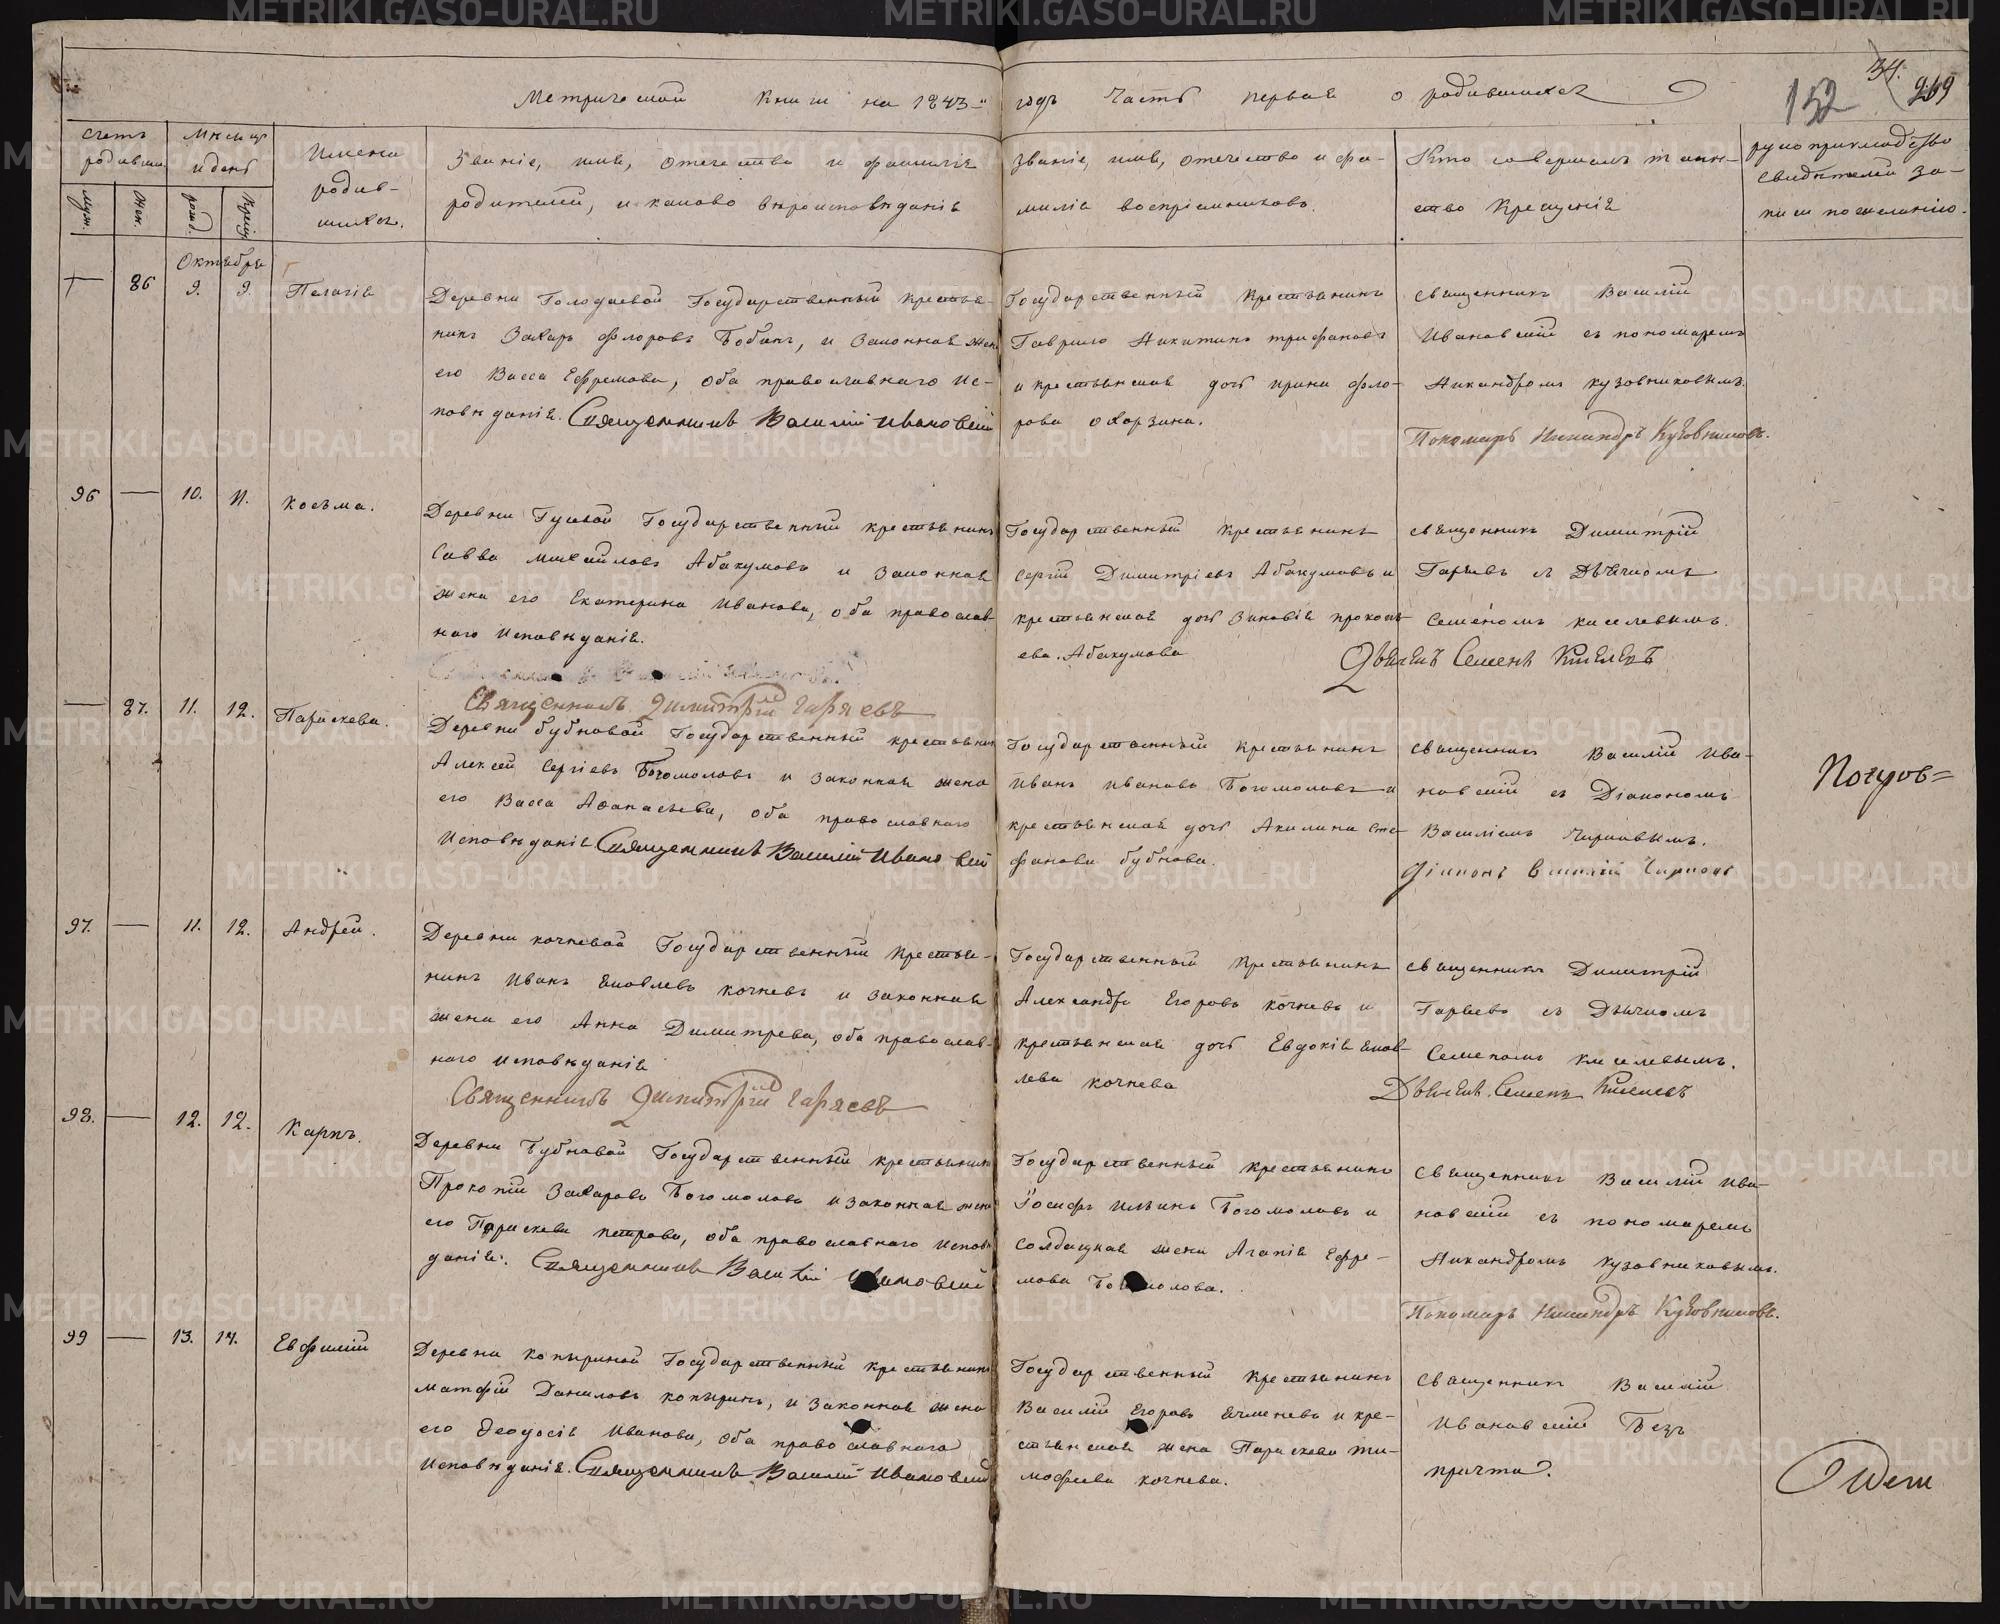 Метрической книги на 1843-й годъ Часть первая о родившихся
152
34.
269
Счетъ родивши
Муж.
Жен.
Мѣсяцъ и день
рожд.
Крещ.
Имена родив-
шихся.
Званіе, имя, отечество и фамилія
родителей, и каково вѣроисповѣданія
Званіе, имя, отечество и фа-
милія воспріемниковъ.
Кто совершалъ таин-
ство Крещенія
рукоприкладство
свидѣтелей за-
писи по желанію.
Октября
86 9. 9. Пелагія
Деревни Голодаевой Государственный крестья-
нинъ Захаръ Флоровъ Бобинъ, и законная жена
его Васса Ефремова, оба православнаго Ис-
повѣданія. Священникъ Василій Ивановскій
Государственный крестьянинъ
Гаврило Никитинъ Трифановъ
и крестьянская дочь Ирина Фло-
рова Охорзина.
Священникъ Василій
Ивановскій съ пономаремъ
Никандромъ Кузовниковымъ.
Пономарь Никандръ Кузовниковъ.
96 10. 11. Косьма.
Деревни Гусевой Государственный крестьянинъ
Савва Михайловъ Абакумовъ и законная
жена его Екатерина Иванова, оба православ-
наго Исповѣданія.
Священникъ Димитрій Гаряевъ
Государственный крестьянинъ
Сергій Димитріевъ Абакумовъ и
крестьянская дочь Зиновія Прокопь-
ева Абакумова
Священникъ Димитрій
Гаряевъ съ Дьячкомъ
Семеномъ Киселевымъ.
Дьячекъ Семенъ Киселевъ
87. 11. 12. Параскева.
Деревни Бубновой Государственный крестьянинъ
Алексей Сергіевъ Богомоловъ и законная жена
его Васса Афанасьева, оба православнаго
Исповѣданія Священникъ Василій Ивановскій
Государственный крестьянинъ
Иванъ Ивановъ Богомоловъ и
крестьянская дочь Акилина Сте-
фанова Бубнова.
Священникъ Василій Ива-
новскій съ Діакономъ
Василіемъ Чирковымъ.
Діаконъ Василій Чирковъ
97. 11. 12. Андрей.
Деревни Кочневой Государственный крестья-
нинъ Иванъ Яковлевъ Кочневъ и законная
жена его Анна Димитрева, оба православ-
наго исповѣданія
Священникъ Димитрій Гаряевъ
Государственный крестьянинъ
Александръ Егоровъ Кочневъ и
крестьянская дочь Евдокія Яков-
лева Кочнева
Священникъ Димитрій
Гаряевъ съ Дьячкомъ
Семеномъ Киселевымъ.
Дьячекъ Семенъ Киселевъ
98. 12. 12. Карпъ.
Деревни Бубновой Государственный крестьянинъ
Прокопій Захаровъ Богомоловъ и законная жена
его Параскева Петрова, оба православнаго Исповѣ
данія. Священникъ Василій Ивановскій
Государственный крестьянинъ
Іосифъ Ильинъ Богомоловъ и
солдацкая жена Агапія Ефре-
мова Богомолова.
Священникъ Василій Ива-
новскій съ пономаремъ
Никандромъ Кузовниковымъ.
Пономарь Никандръ Кузовниковъ.
99 13. 14. Евфимій
Деревни Копыриной Государственный крестьянинъ
Матфій Даниловъ Копыринъ, и законная жена
его Феодосія Иванова, оба православнаго
Исповѣданія. Священникъ Василій Ивановскій
Государственный крестьянинъ
Василій Егоровъ Ячменевъ и кре-
стьянская жена Параскева Ти-
мофеева Кочнева.
Священникъ Василій
Ивановскій Безъ
причта.
METRIKI.GASO-URAL.RU